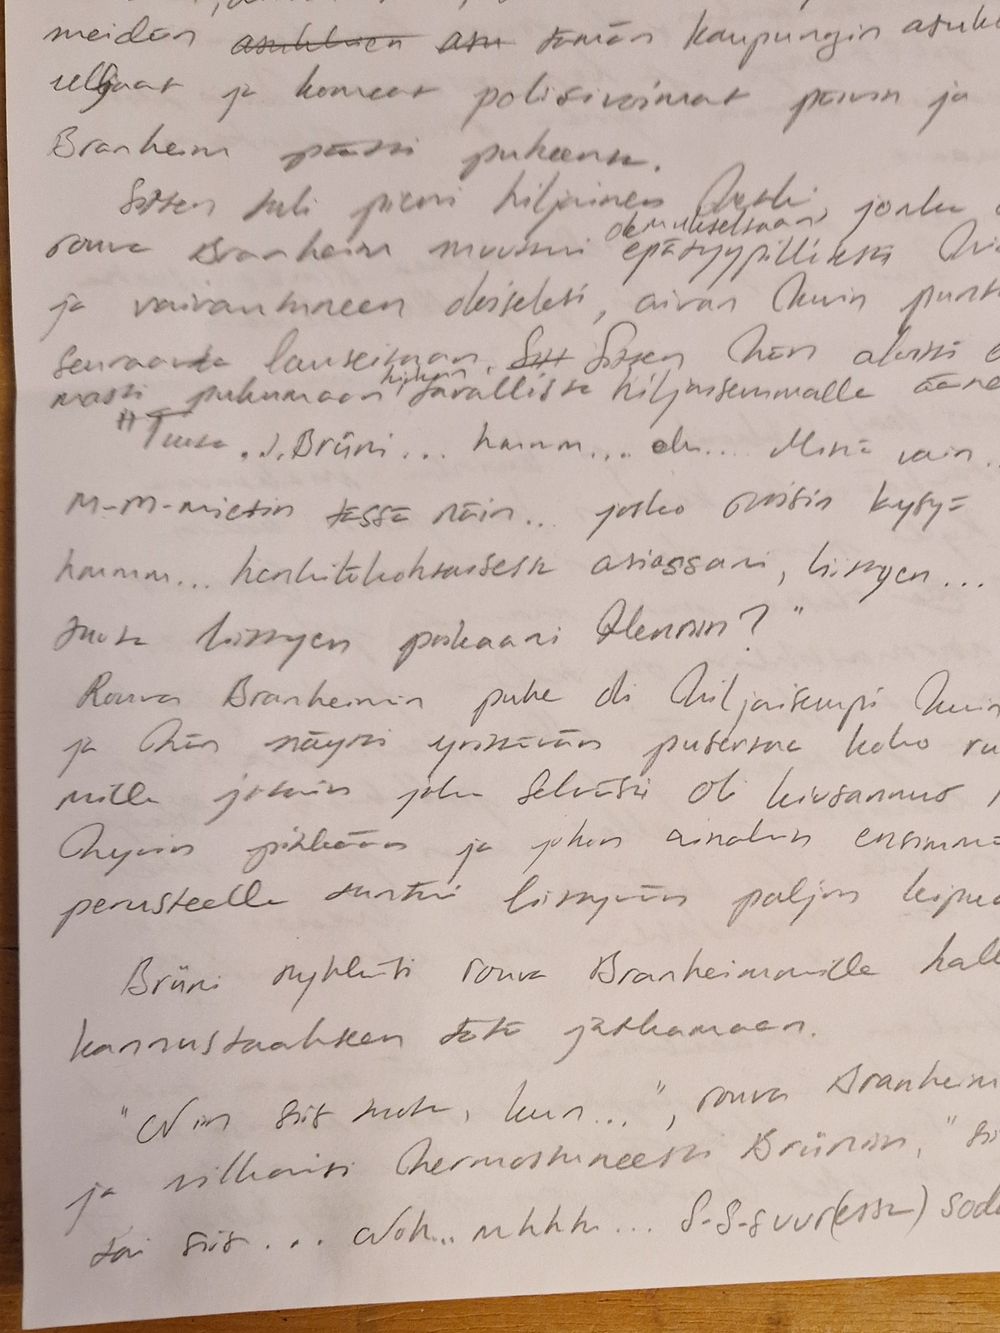 meidän asukkaen asu tämän kaupungin asuk
ja komeat poliisivoimat päivin ja
Branheim pääsi puheensa.
Sitten tuli pieni hiljainen hetki, jonka
rouva Branheim muuttui olemukseltaan epätyypilliseksi
ja vaivautuneen oloiseksi, aivan kuin
seuraavia lauseitaan. Sitt Sitten hän alkoi
masti puhumaan hieman tavallista hiljaisemmalla ääne
"Tuota... Brüni... hmmm... eh.... Minä vain..
M-m-mietin tässä näin.. josko voisin kysyä
hmmm... henkilökohtaisesta asiassani, liittyen...
tuota liittyen poikaani Henrin?"
Rouva Branheimin puhe oli hiljaisempi kuin
ja hän näytti yrittävän pusertaa koko
mille jotain joka selvästi oli kiusannut
hyvin pitkään ja johon ainakin ensimmä
perusteella tuntui liittyvän paljon kipua
Brüni nyökkäsi rouva Branheimille
kannustaakseen tätä jatkamaan.
"Niin siis tuota, kun...", rouva Branheim
ja vilkaisi hermostuneesti Brüniin, "si
tai siis... Noh.. uhhh... S-S-suur(essa) soda